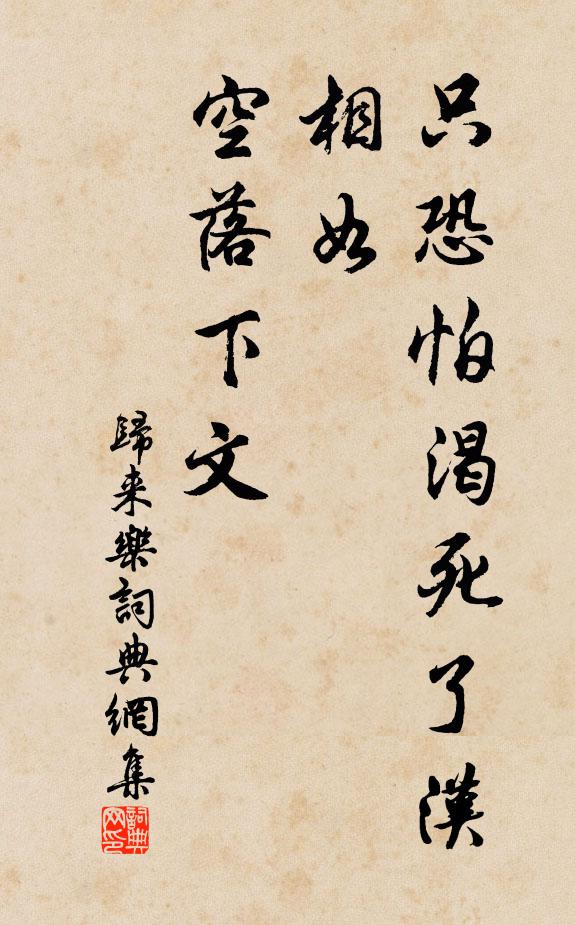 只恐怕渴死了漢
相如
空落下文
歸来樂詞典網集
詞典网印